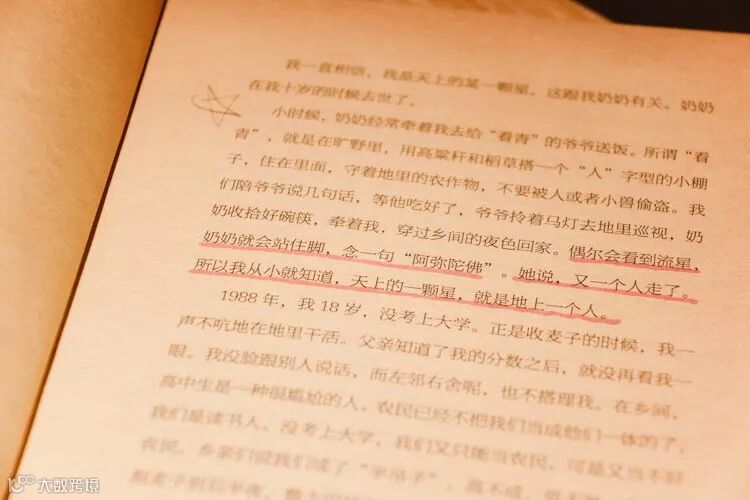 我一直相信，我是天上的某一颗星。这跟我奶奶有关。奶奶
在我十岁的时候去世了。
小时候，奶奶经常牵着我去给“看青”的爷爷送饭。所谓“看
青”，就是在旷野里，用高粱秆和稻草搭一个“人”字型的小棚
子，住在里面，守着地里的农作物，不要被人或者小兽偷盗。我
们陪爷爷说几句话，等他吃好了，爷爷拎着马灯去地里巡视，奶
奶收拾好碗筷，牵着我，穿过乡间的夜色回家。偶尔会看到流星，
奶奶就会站住脚，念一句“阿弥陀佛”。她说，又一个人走了。
所以我从小就知道，天上的一颗星，就是地上一个人。
1988年，我18岁，没考上大学。正是收麦子的时候，我一
声不吭地在地里干活。父亲知道了我的分数之后，就没再看我一
眼。我没脸跟别人说话，而左邻右舍呢，也不搭理我。在乡间，
高中生是一种很尴尬的人。农民已经不把我们当成他们一体的了，
我们是读书人。没考上大学，我们又只能当农民，可是又当不好
农民。乡亲们说我们成了“半吊子”
大数跨境